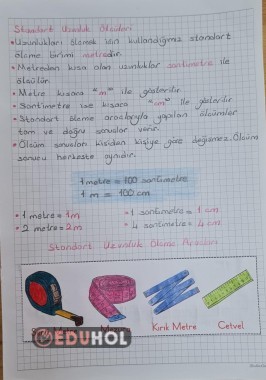 Standart Uzunluk Ölçüleri
• Uzunlukları ölçmek için kullandığımız standart
ölçme birimi metredir.
• Metreden kısa olan uzunluklar santimetre ile
ölçülür.
• Metre kısaca "m" ile gösterilir.
• Santimetre ise kısaca "cm" ile gösterilir.
• Standart ölçme araçlarıyla yapılan ölçümler
tam ve doğru sonuçlar verir.
• Ölçüm sonuçları kişiden kişiye göre değişmez. Ölçüm
sonucu herkeste aynıdır.
1 metre = 100 santimetre
1 m = 100 cm
• 1 metre = 1m
• 1 santimetre = 1 cm
• 2 metre = 2m
• 4 santimetre = 4 cm
Standart Uzunluk Ölçme Araçları
Kırık Metre
Cetvel
EDUHOL